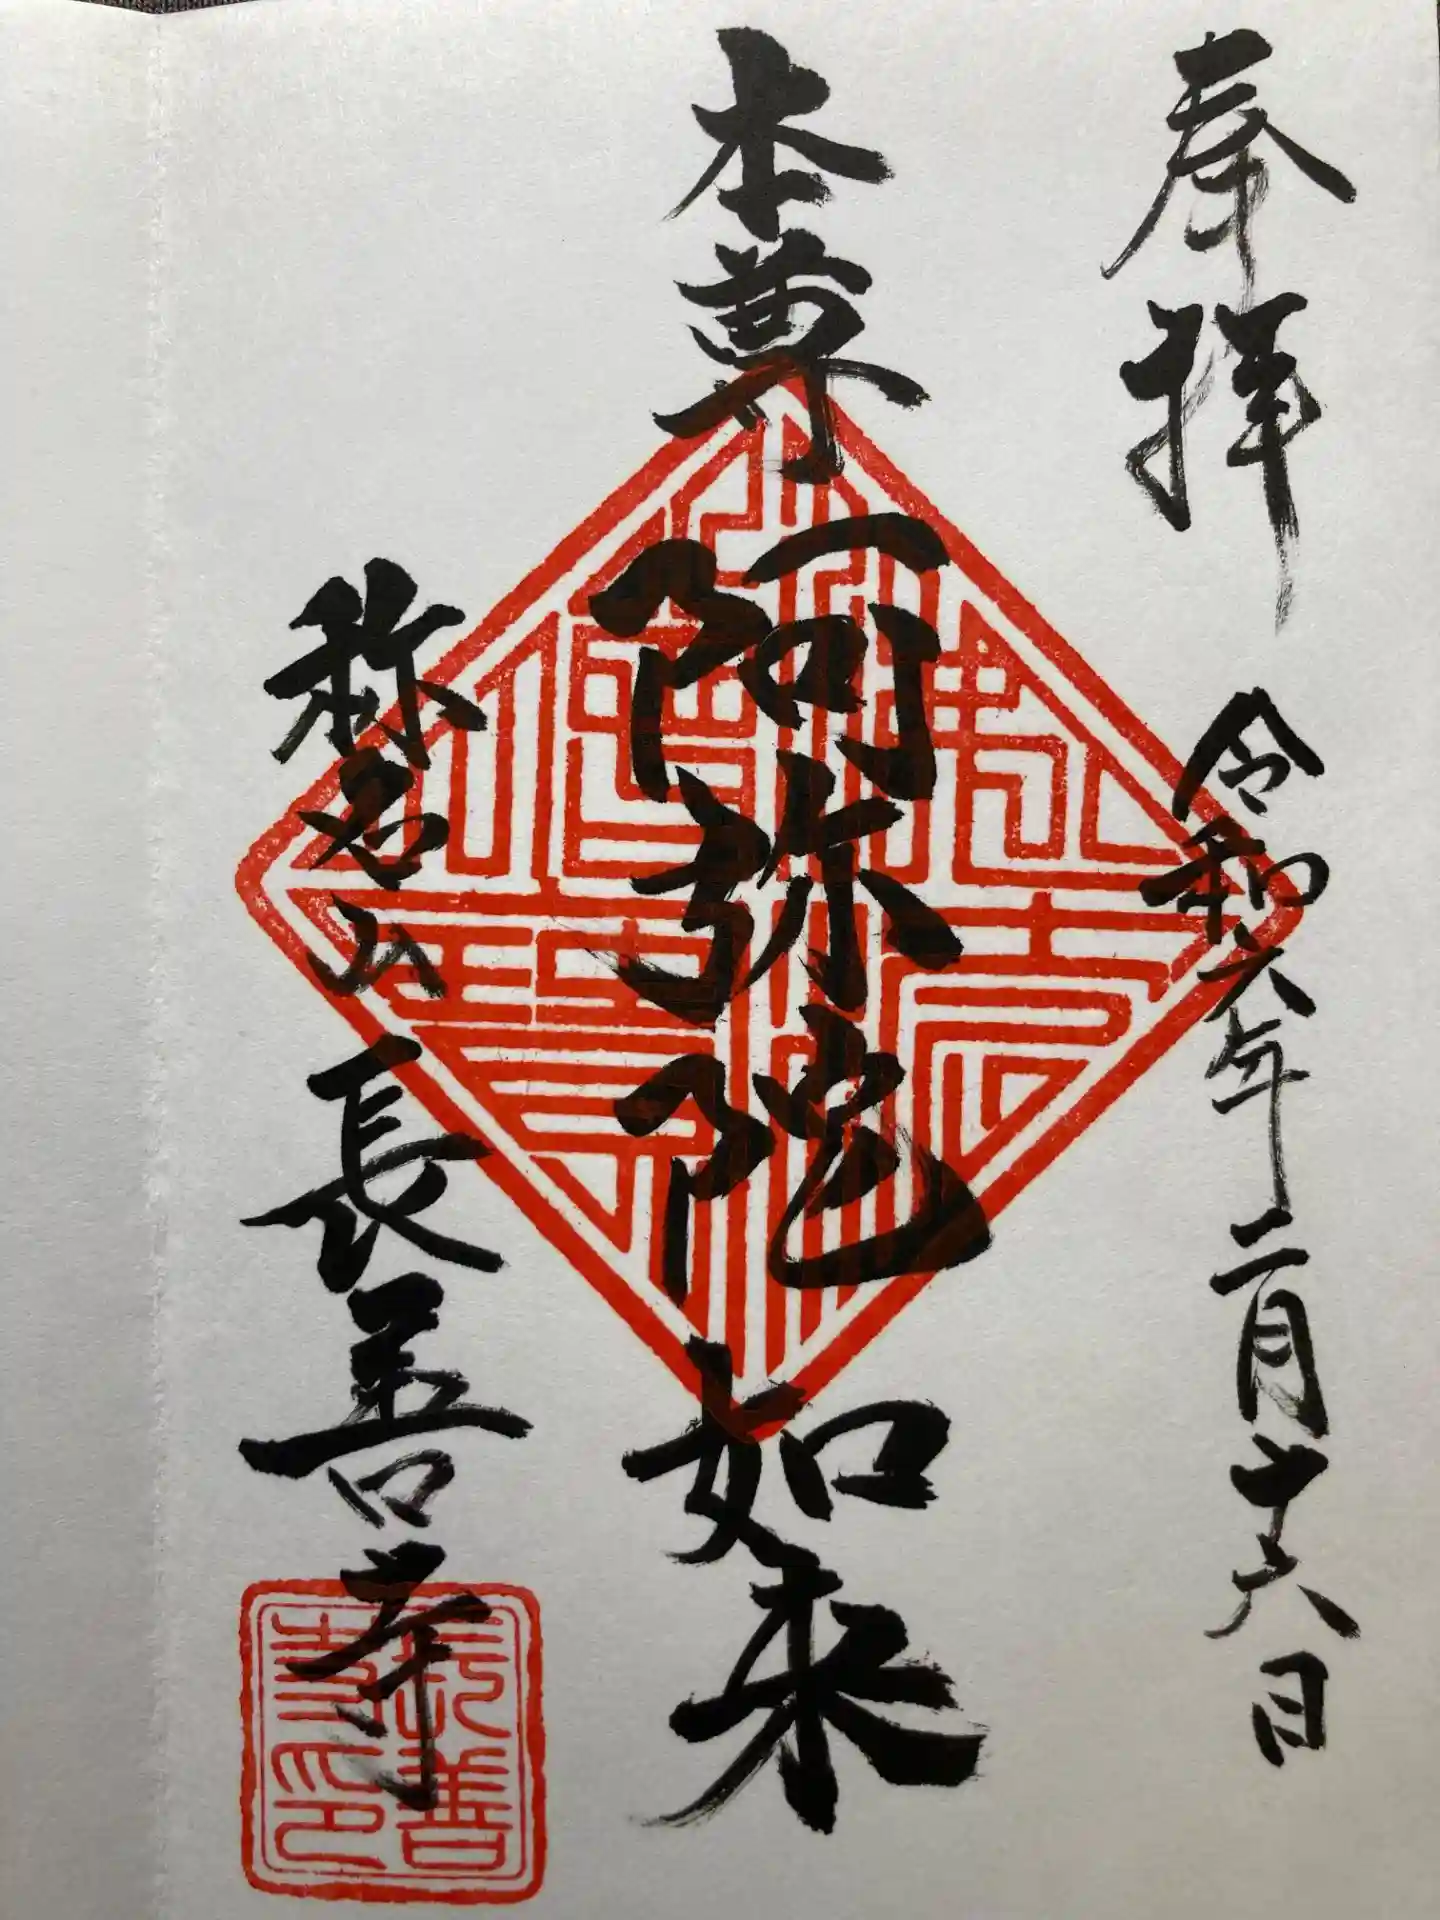 奉拝
令和六年二月十六日
本尊
阿弥陀
如来
称名山
長善寺
長善
寺印